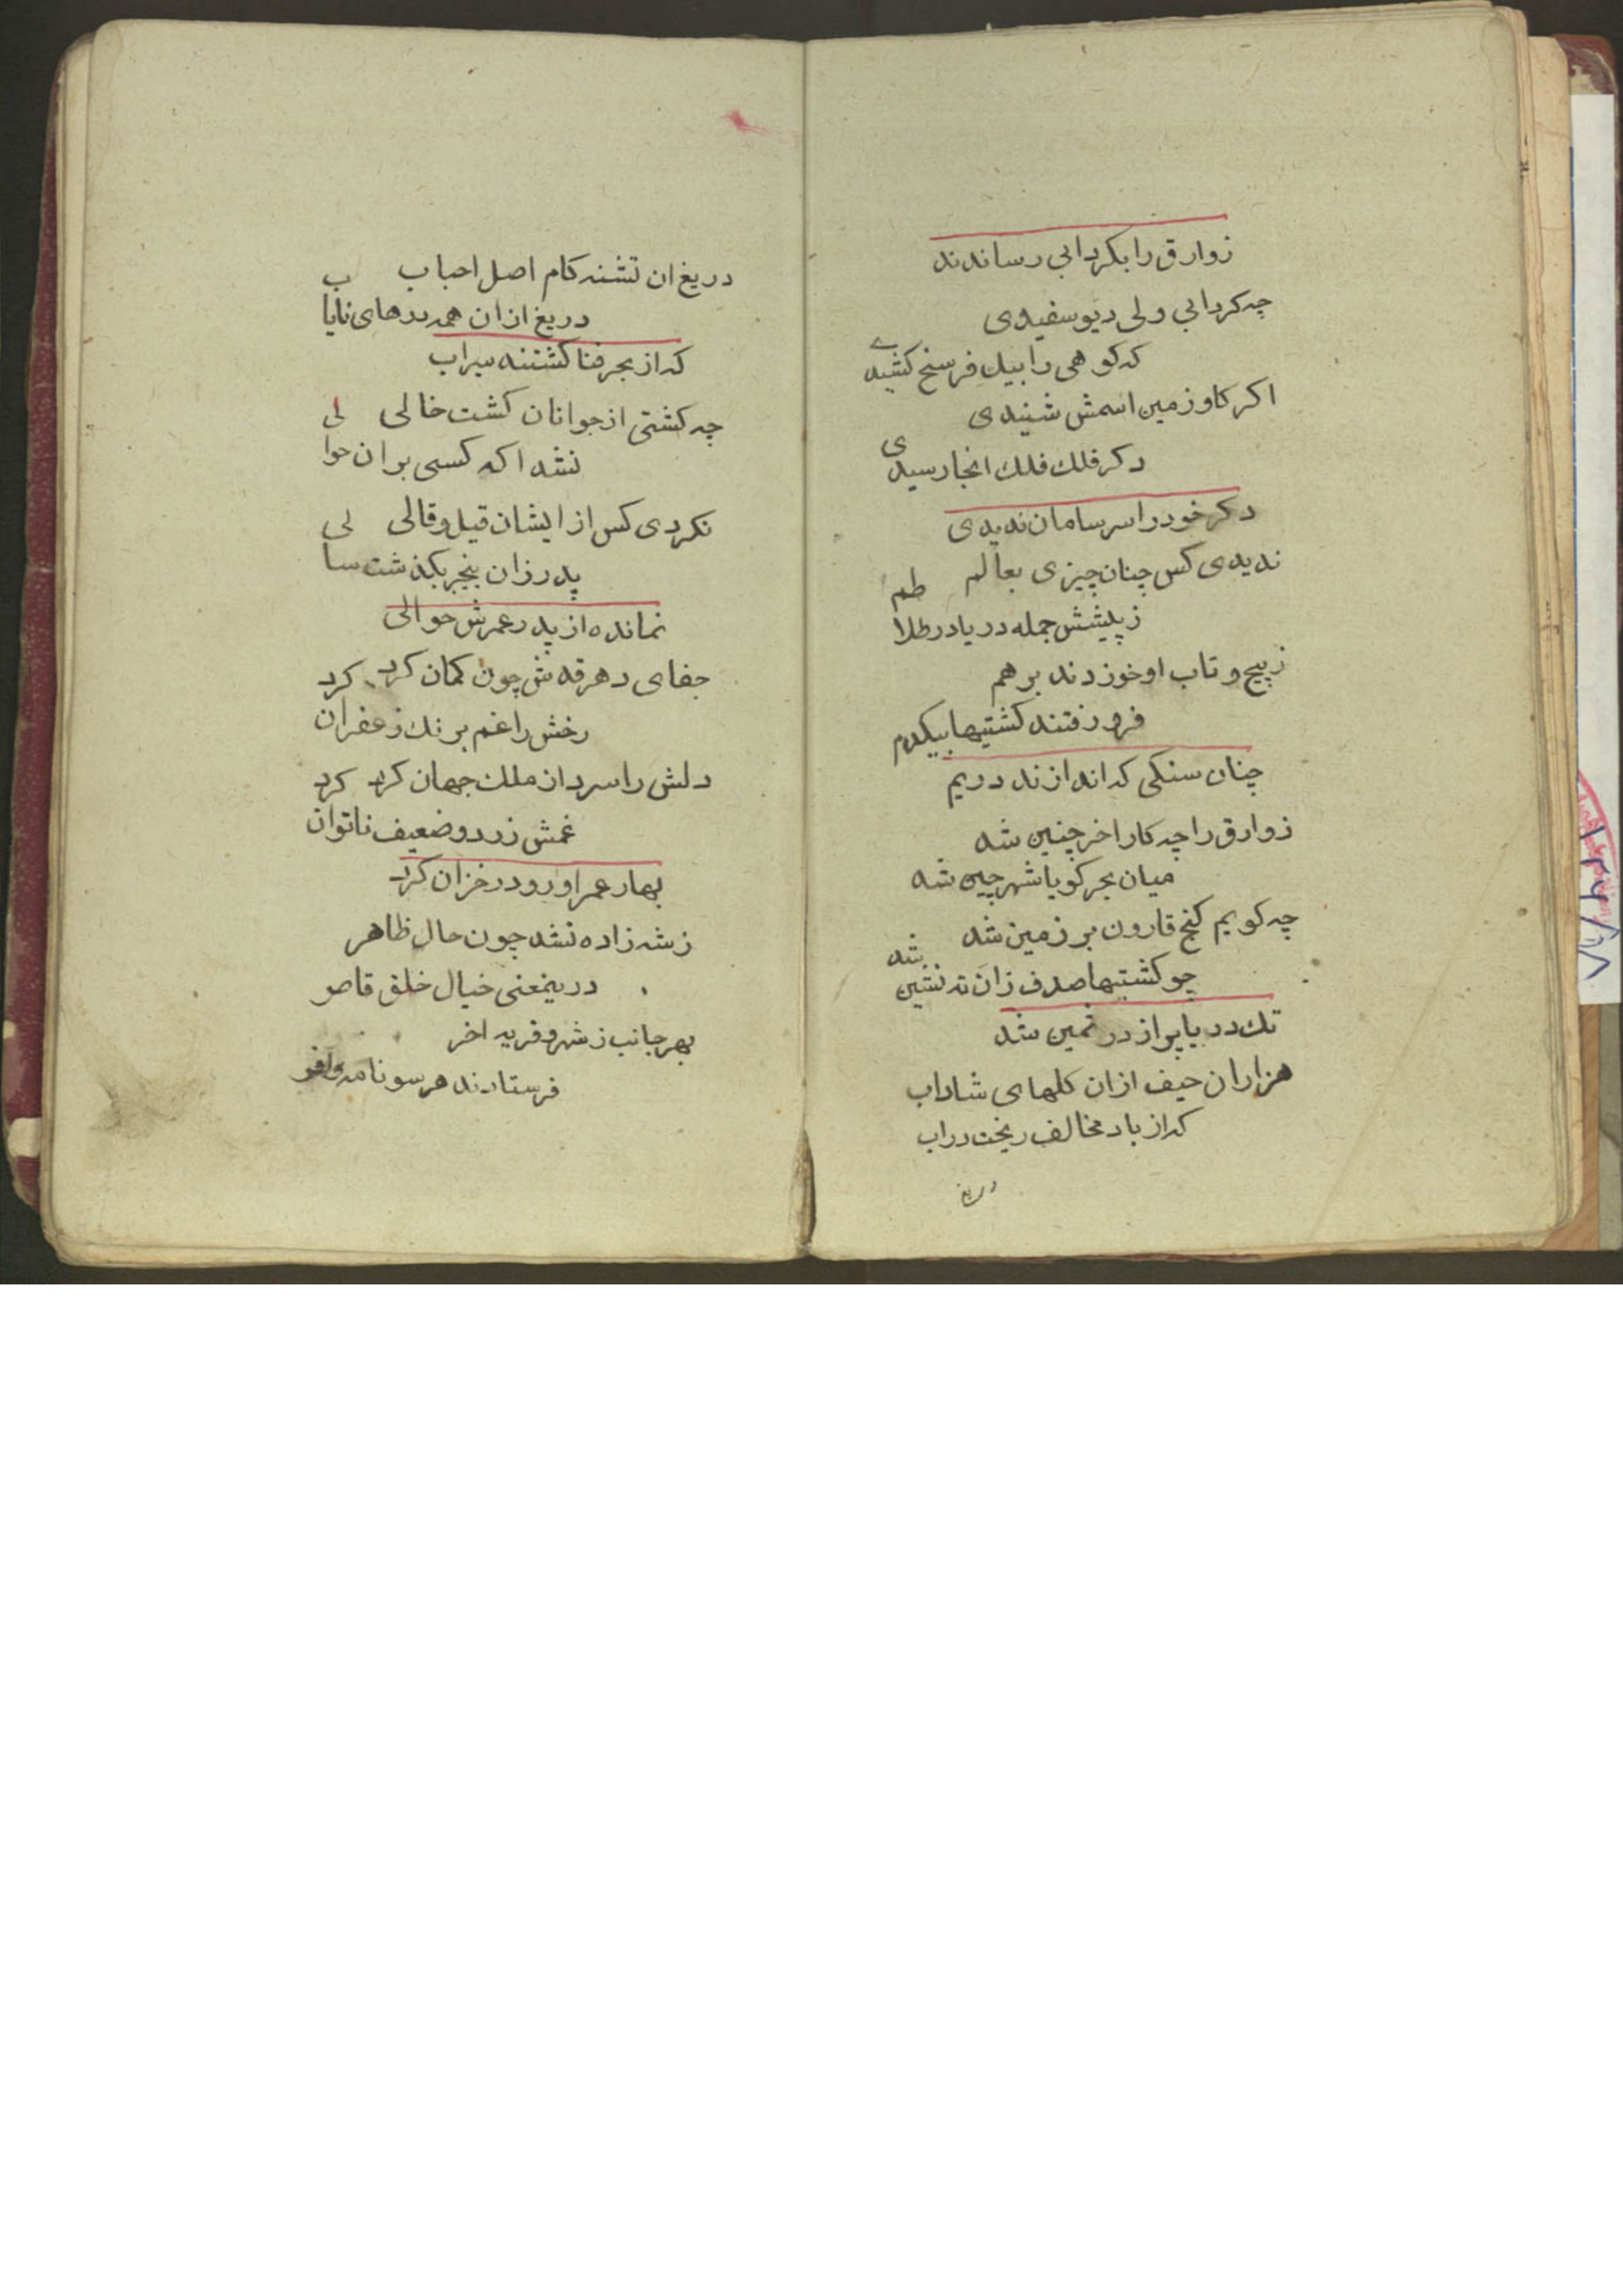 زوارق را بکردابی رساندند
چه کردابی ولی دیو سفیدی
که کوهی را بیک فرسخ کشیدے
اکر کاو زمین اسمش شنیدی
دکر فلک فلک انجا رسیدی
دکر خود را سر سامان ندیدی
ندیدی کس چنان چیزی بعالم
ز پلیشش جمله دریا در طلاطم
ز پیچ و تاب او خوردند برهم
فرو رفتند کشتیها بیکدم
چنان سنکی که اندازند دریم
زوارق را چه کار اخر چنین شد
میان بحر کویا شهر چین شد
چه کویم کنج قارون بر زمین شد
چو کشتیها صدف زان ته نشین شد
تک دریا پر از در ثمین شد
هزاران حیف ازان کلهای شاداب
که از باد مخالف ریخت دراب
دریغ
دریغ ان تشنه کام اصل احباب
دریغ ازان همه درهای نایاب
که از بحر فنا کشتند سیراب
چه کشتی از جوانان کشت خالی
نشد اکه کسی بر ان حوالی
نکردی کس از ایشان قیل و قالی
پدر زان بیخبر بکذشت سالی
نمانده از پدر عمرش حوالی
جفای دهر قدش چون کمان کرد
رخش را غم برنک زعفران کرد
دلش را سرد از ملک جهان کرد
غمش زرد و ضعیف ناتوان کرد
بهار عمر او رو در خزان کرد
ز شه زاده نشد چون حال ظاهر
درینمعنی خیال خلق قاصر
بهر جانب ز شهر و قریه اخر
فرستادند هر سو نامه وافر